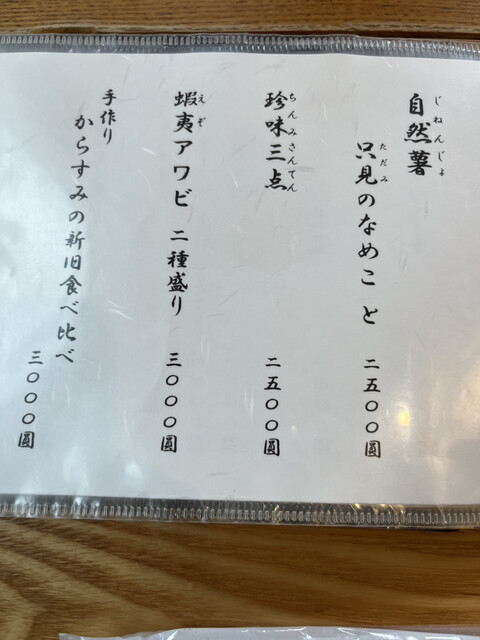 自然薯
じねんじょ
只見のなめこ と 二五〇〇圓
ただみ
珍味三点 二五〇〇圓
ちんみさんてん
蝦夷アワビ 二種盛り 三〇〇〇圓
えぞ
手作り
からすみの新旧食べ比べ
三〇〇〇圓